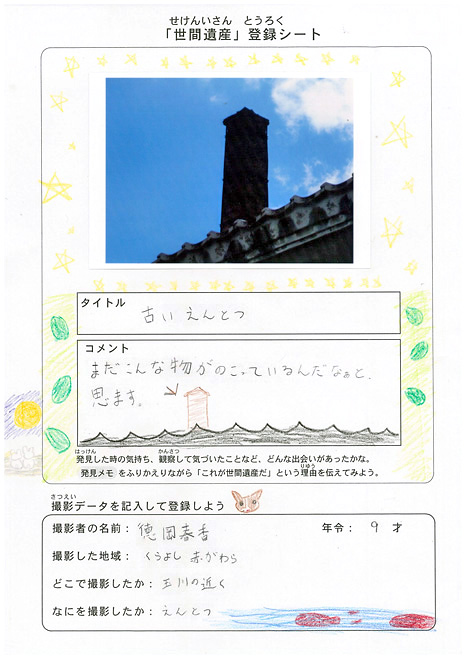 せけんいさん とうろく
「世間遺産」登録シート
タイトル
古い えんとつ
コメント
まだこんな物がのこっているんだなぁと、
思います。
はっけん かんさつ
発見した時の気持ち、観察して気づいたことなど、どんな出会いがあったかな。
りゆう
発見メモ をふりかえりながら「これが世間遺産だ」という理由を伝えてみよう。
さつえい
撮影データを記入して登録しよう
撮影者の名前: 徳岡春香 年令: 9 才
撮影した地域: くらよし 赤がわら
どこで撮影したか: 玉川の近く
なにを撮影したか: えんとつ